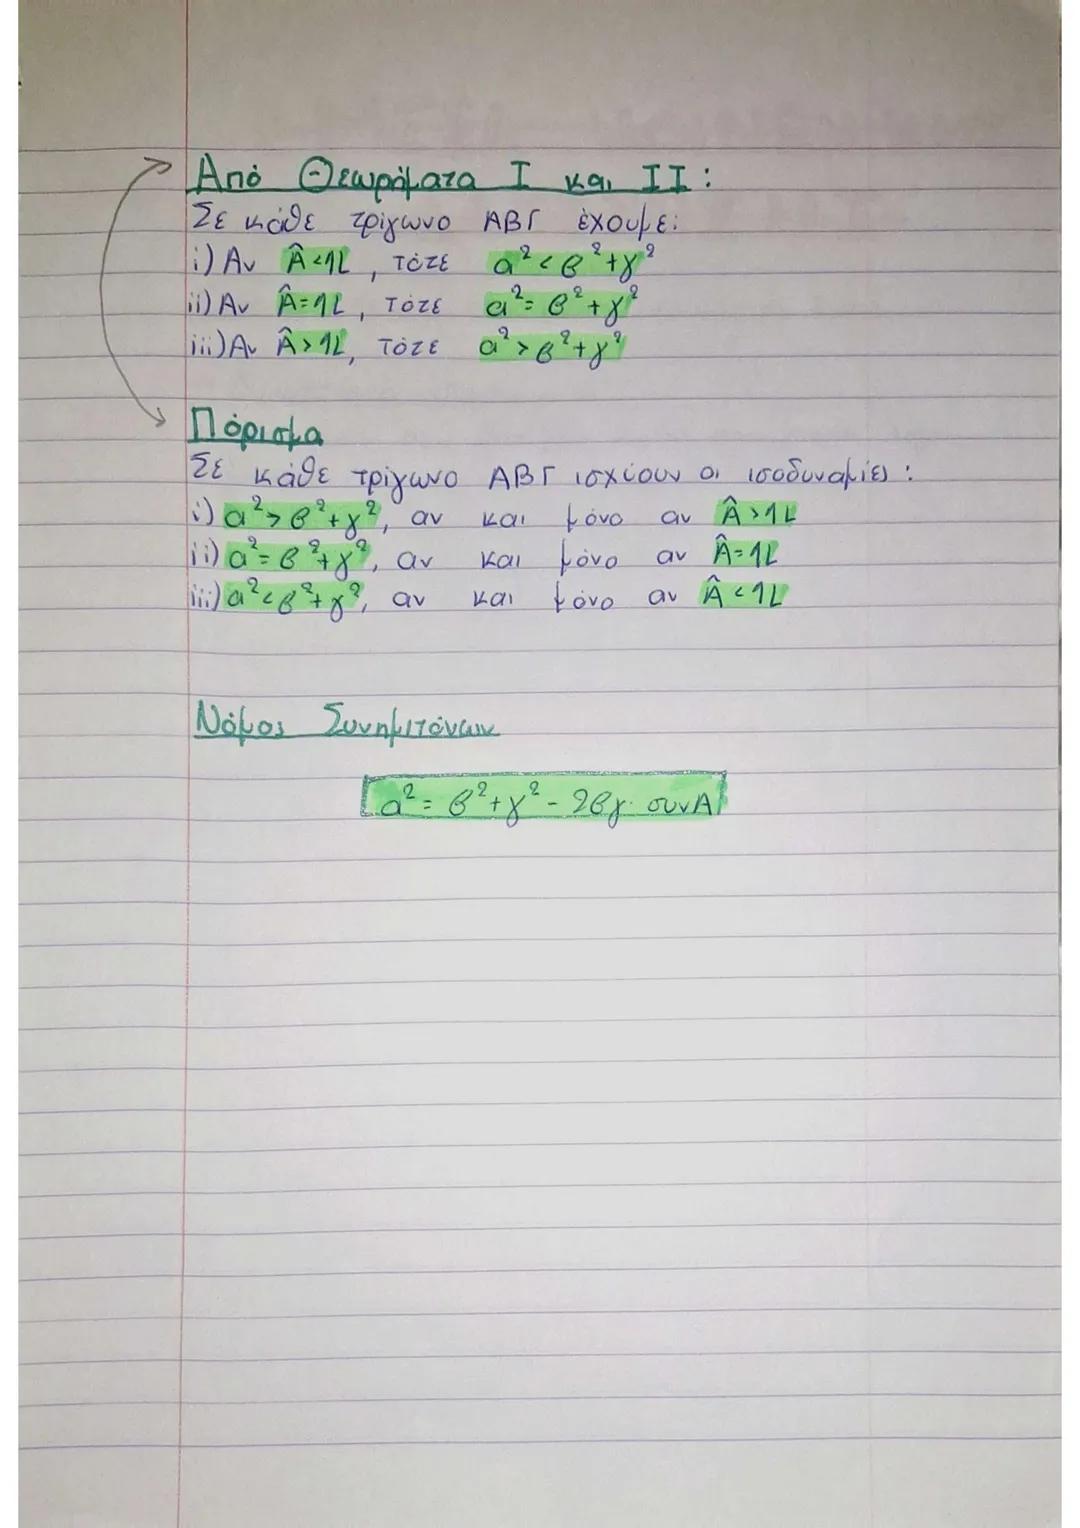 Από Θεωρήματα I και II:
Σε κάθε τρίγωνο ΑΒΓ έχουμε:
i) Αν Â<1L, τότε α²<β²+γ²
ii) Αν Â=1L, τότε α²=β²+γ²
iii) Αν Â>1L, τότε α²>β²+γ²
Πόρισμα
Σε κάθε τρίγωνο ΑΒΓ ισχύουν οι ισοδυναμίες:
i) α²>β²+γ², αν και μόνο αν Â>1L
ii) α²=β²+γ², αν και μόνο αν Â=1L
iii) α²<β²+γ², αν και μόνο αν Â<1L
Νόμος Συνημιτόνων
α²=β²+γ²-2βγ·συνΑ